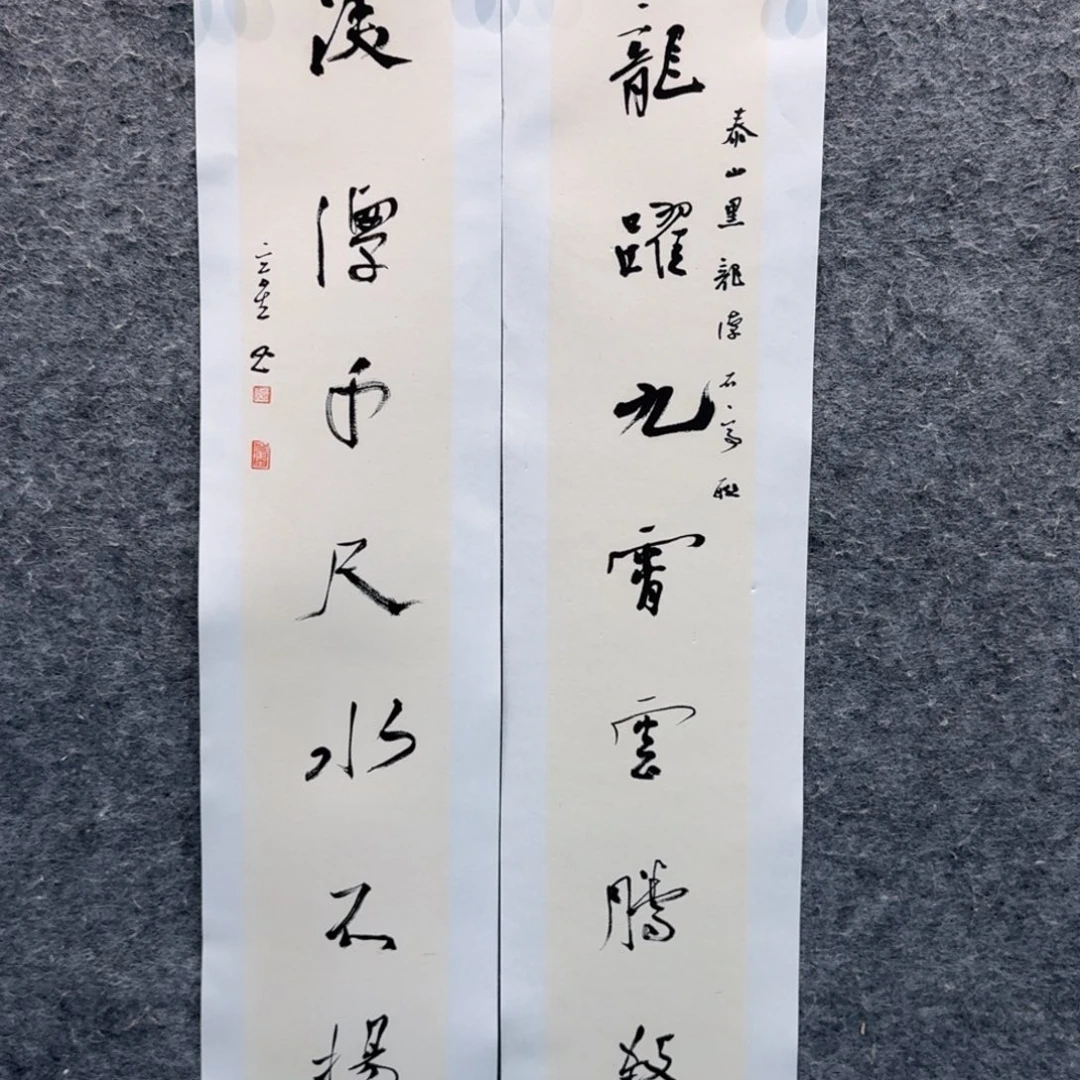 龍躍九霄雲騰致
泰山黑龍潭石亭聯
潭千尺水不揚